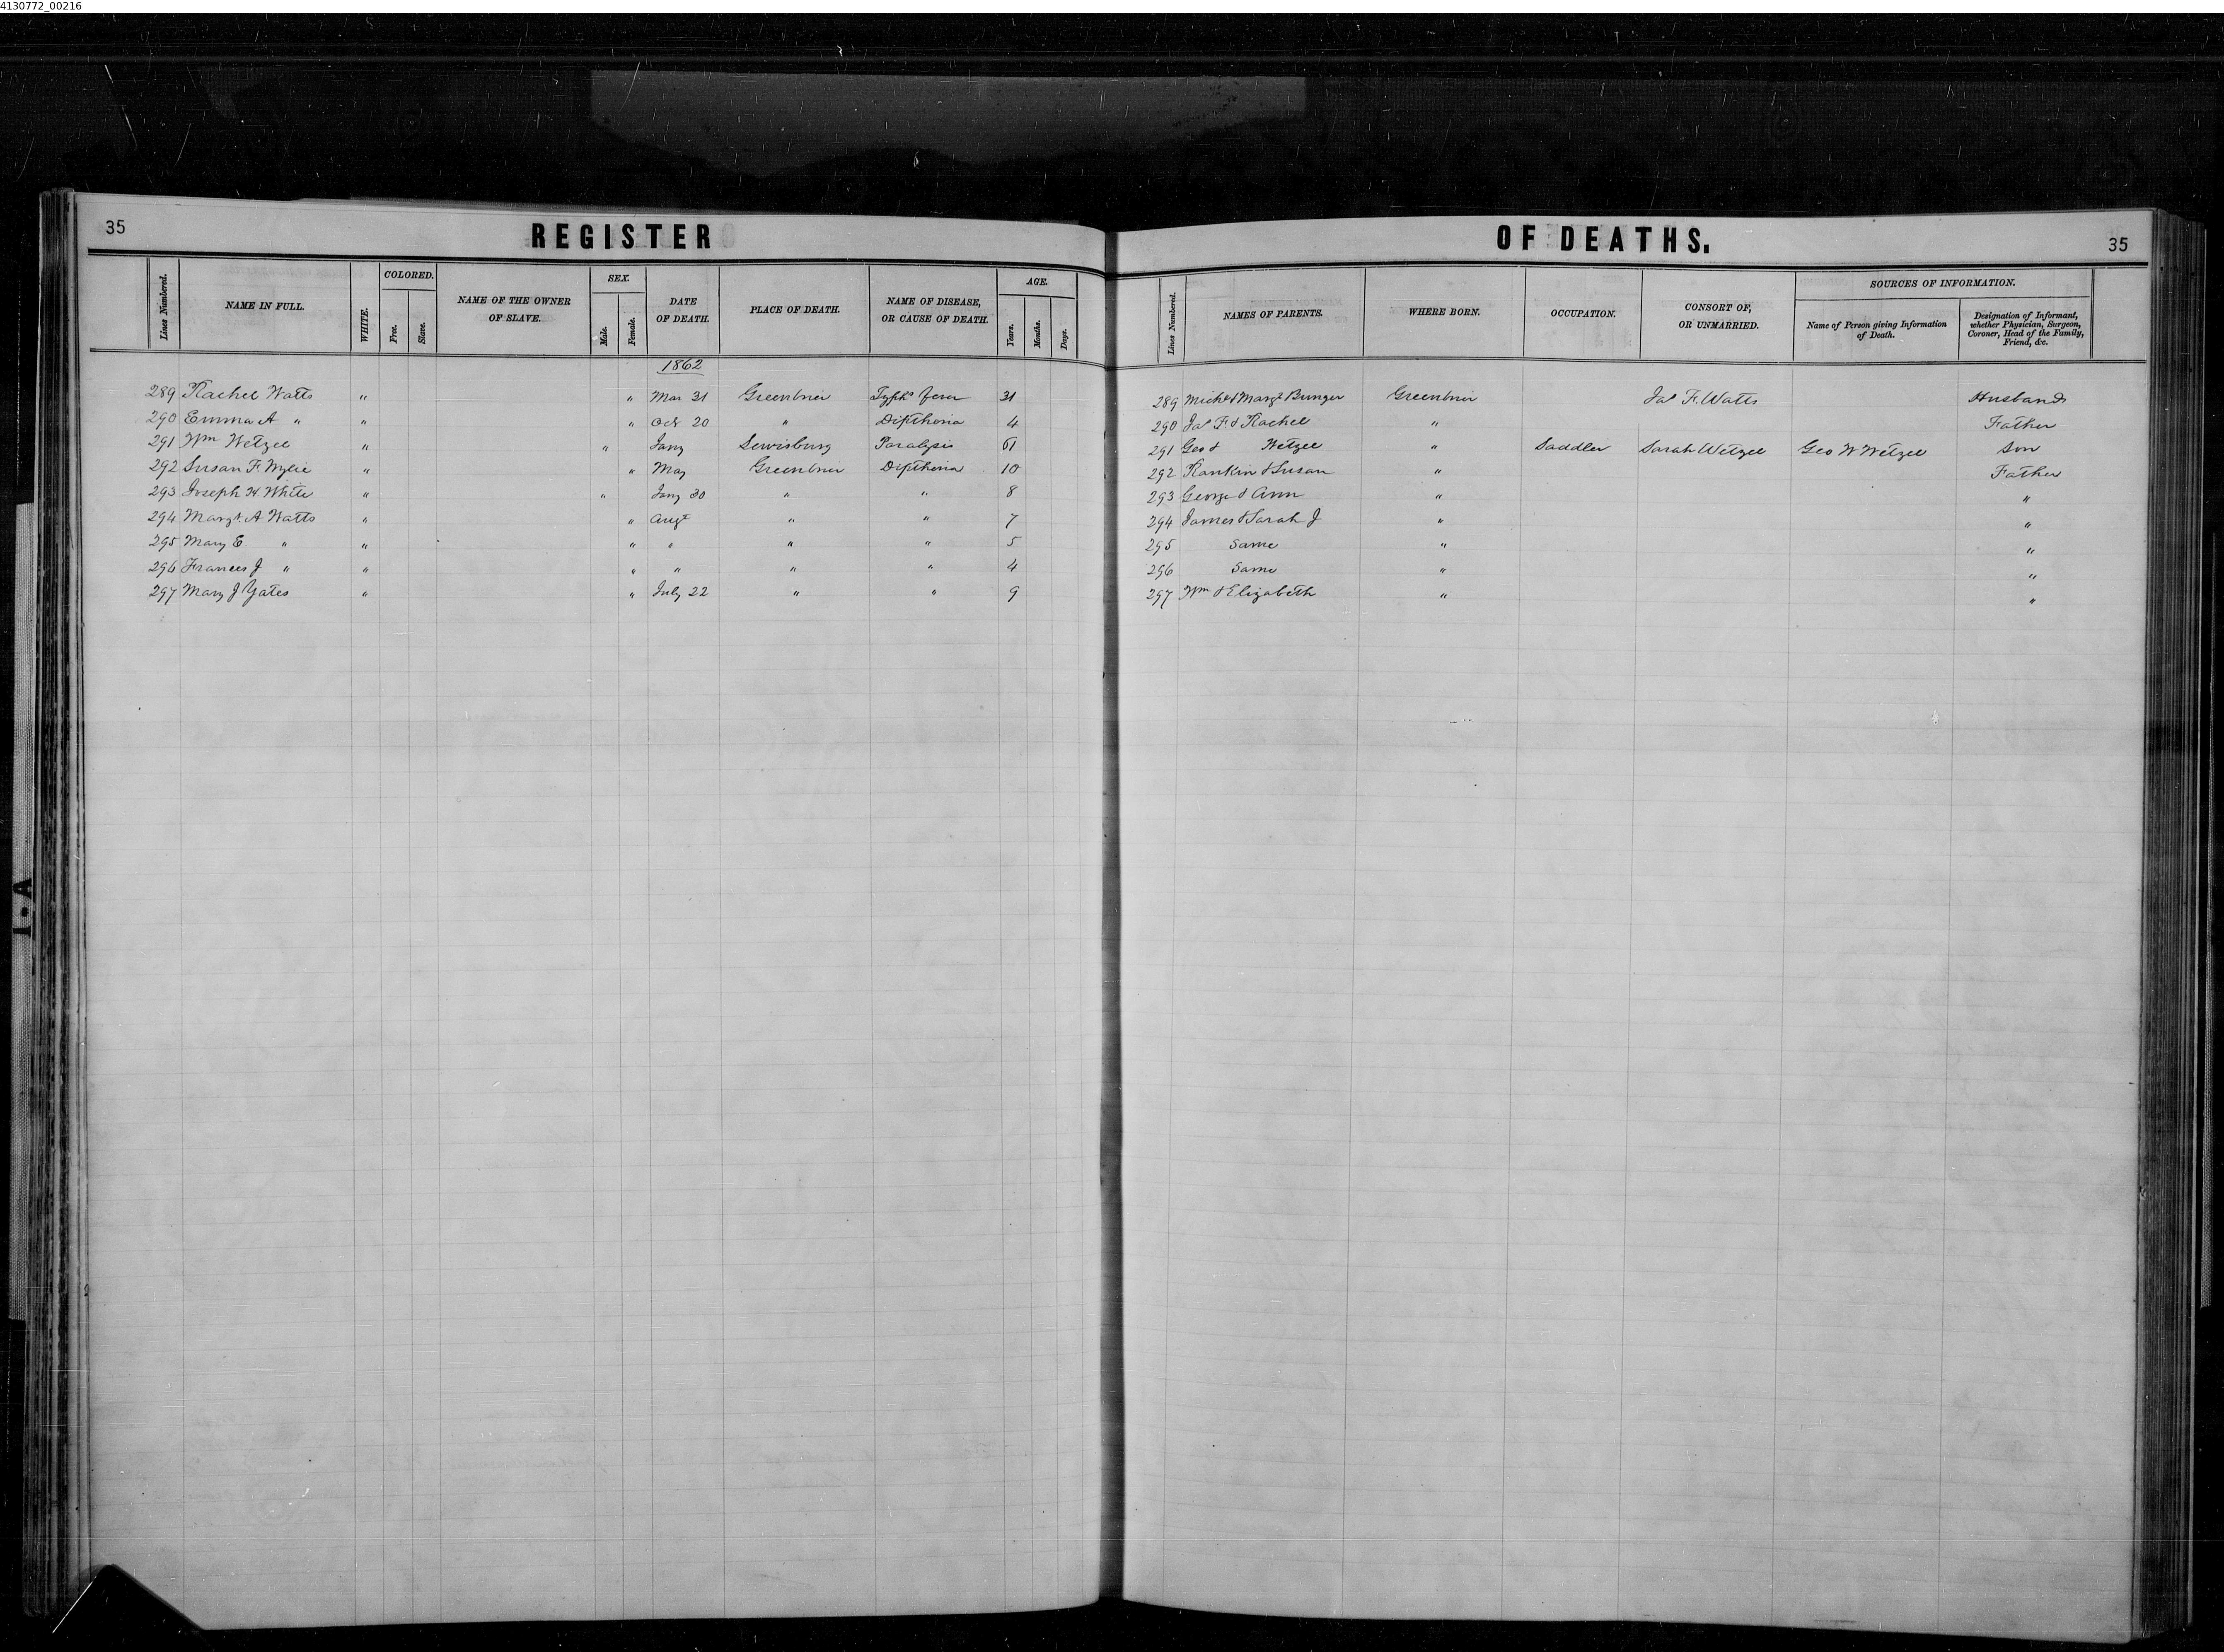 4130772_00216
35 REGISTER OF DEATHS. 35
Lines Numbered. NAME IN FULL. WHITE. COLORED. Free. Slave. NAME OF THE OWNER OF SLAVE. SEX. Male. Female. DATE OF DEATH. PLACE OF DEATH. NAME OF DISEASE, OR CAUSE OF DEATH. AGE. Years. Months. Days.
Lines Numbered. NAMES OF PARENTS. WHERE BORN. OCCUPATION. CONSORT OF, OR UNMARRIED. SOURCES OF INFORMATION. Name of Person giving Information of Death. Designation of Informant, whether Physician, Surgeon, Coroner, Head of the Family, Friend, &c.
1862
289 Rachel Watts " " Mar 31 Greenbrier Typhd fever 31 289 Michl & Margt Bunger Greenbrier Jas F. Watts Husband
290 Emma A " " " Oct 20 " Dipthoria 4 290 Jas F & Rachel " Father
291 Wm Wetzel " " Jany Lewisburg Paralysis 61 291 Geo & Wetzel " Saddler Sarah Wetzel Geo W Wetzel Son
292 Susan F. Wylie " " May Greenbrier Dipthoria 10 292 Rankin & Susan " Father
293 Joseph H White " " Jany 30 " " 8 293 George & Ann " "
294 Margt. A Watts " " Augt " " 7 294 James & Sarah J " "
295 Mary E. " " " " " " 5 295 Same " "
296 Frances J " " " " " " 4 296 Same " "
297 Mary J Yates " " July 22 " " 9 297 Wm & Elizabeth " "